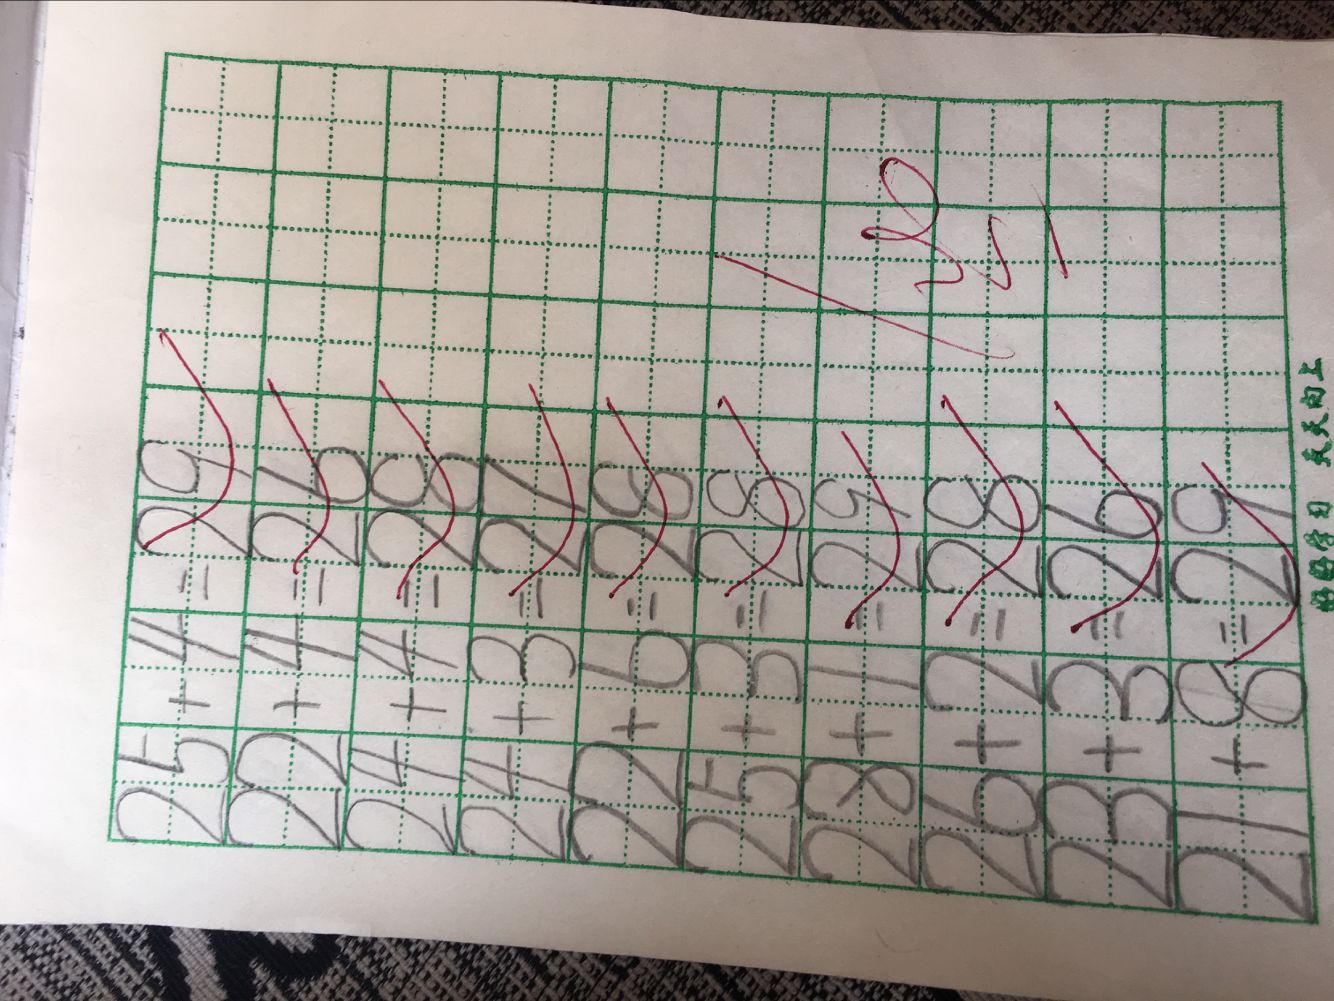 25+4=29
22+4=26
24+4=28
24+3=27
22+6=28
25+3=28
28+1=29
26+2=28
23+3=26
21+8=29
100
好好学习 天天向上